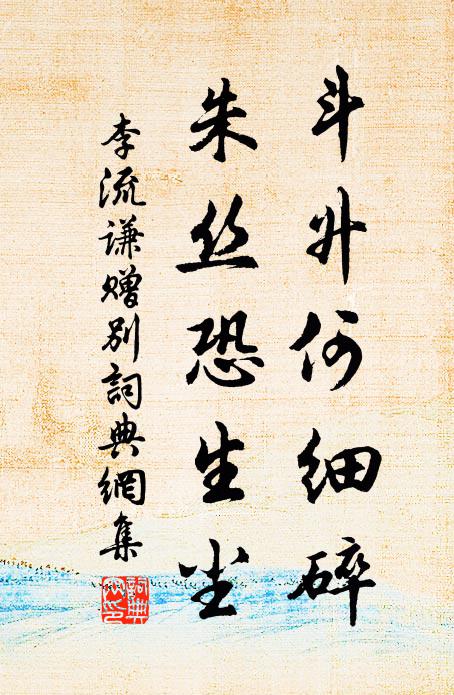 斗升何细碎
朱丝恐生尘
李流谦赠别詞典網集